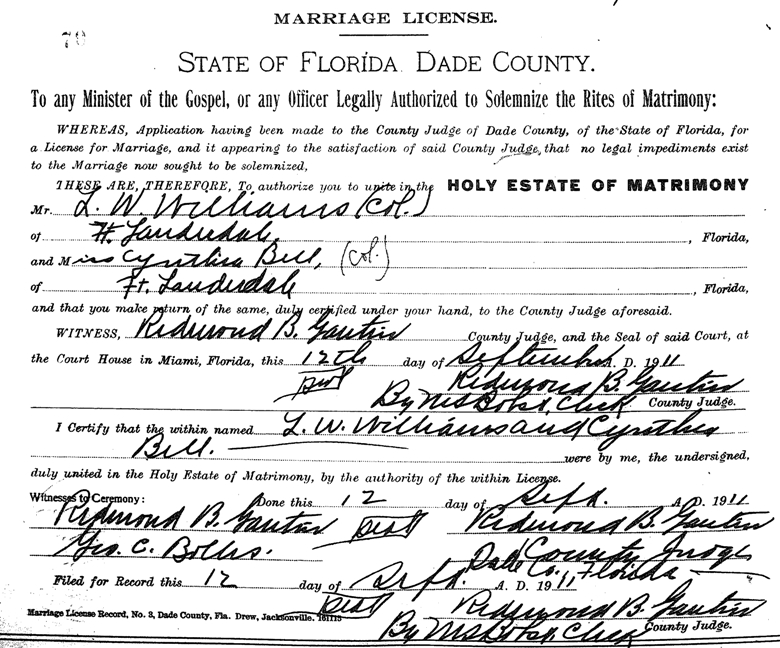 MARRIAGE LICENSE.
70
STATE OF FLORIDA DADE COUNTY.
To any Minister of the Gospel, or any Officer Legally Authorized to Solemnize the Rites of Matrimony:
WHEREAS, Application having been made to the County Judge of Dade County, of the State of Florida, for
a License for Marriage, and it appearing to the satisfaction of said County Judge, that no legal impediments exist
to the Marriage now sought to be solemnized,
THESE ARE, THEREFORE, To authorize you to unite in the HOLY ESTATE OF MATRIMONY
Mr. L. W. Williams (Col.)
of Ft. Lauderdale, , Florida,
and Miss Cynthia Bell, (Col.)
of Ft. Lauderdale , Florida,
and that you make return of the same, duly certified under your hand, to the County Judge aforesaid.
WITNESS, Redmond B. Gautier County Judge, and the Seal of said Court, at
the Court House in Miami, Florida, this 12th day of September A. D. 1911
Seal Redmond B. Gautier
By Clerk County Judge.
I Certify that the within named L. W. Williams and Cynthia
Bell. were by me, the undersigned,
duly united in the Holy Estate of Matrimony, by the authority of the within License.
Witnesses to Ceremony: Done this 12 day of Sept. A. D. 1911
Redmond B. Gautier Seal Redmond B. Gautier
Geo. C. Bolles. County Judge
Dade Co., Florida
Filed for Record this 12 day of Sept. A. D. 1911
Seal Redmond B. Gautier
Marriage License Record, No. 3, Dade County, Fla. Drew, Jacksonville. County Judge.
By Clerk